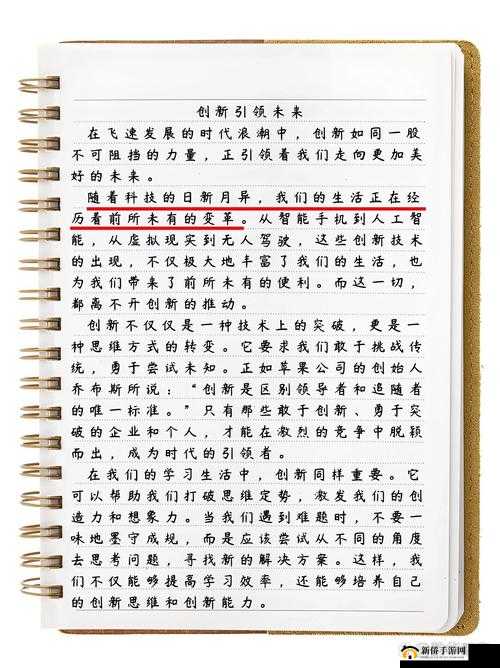 创新引领未来
在飞速发展的时代浪潮中，创新如同一股
不可阻挡的力量，正引领着我们走向更加美
好的未来。
随着科技的日新月异，我们的生活正在经
历着前所未有的变革。从智能手机到人工智
能，从虚拟现实到无人驾驶，这些创新技术
的出现，不仅极大地丰富了我们的生活，也
为我们带来了前所未有的便利。而这一切，
都离不开创新的推动。
创新不仅仅是一种技术上的突破，更是一
种思维方式的转变。它要求我们敢于挑战传
统，勇于尝试未知。正如苹果公司的创始人
乔布斯所说：“创新是区别领导者和追随者
的唯一标准。”只有那些敢于创新、勇于突
破的企业和个人，才能在激烈的竞争中脱颖
而出，成为时代的引领者。
在我们的学习生活中，创新同样重要。它
可以帮助我们打破思维定势，激发我们的创
造力和想象力。当我们遇到难题时，不要一
味地墨守成规，而是应该尝试从不同的角度
去思考问题，寻找新的解决方案。这样，我
们不仅能够提高学习效率，还能够培养自己
的创新思维和创新能力。
新侨手游网